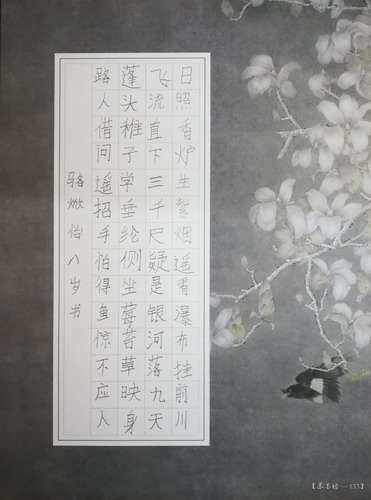 日照香炉生紫烟遥看瀑布挂前川
飞流直下三千尺疑是银河落九天
蓬头稚子学垂纶侧坐莓苔草映身
路人借问遥招手怕得鱼惊不应人
骆焮怡八岁书
133